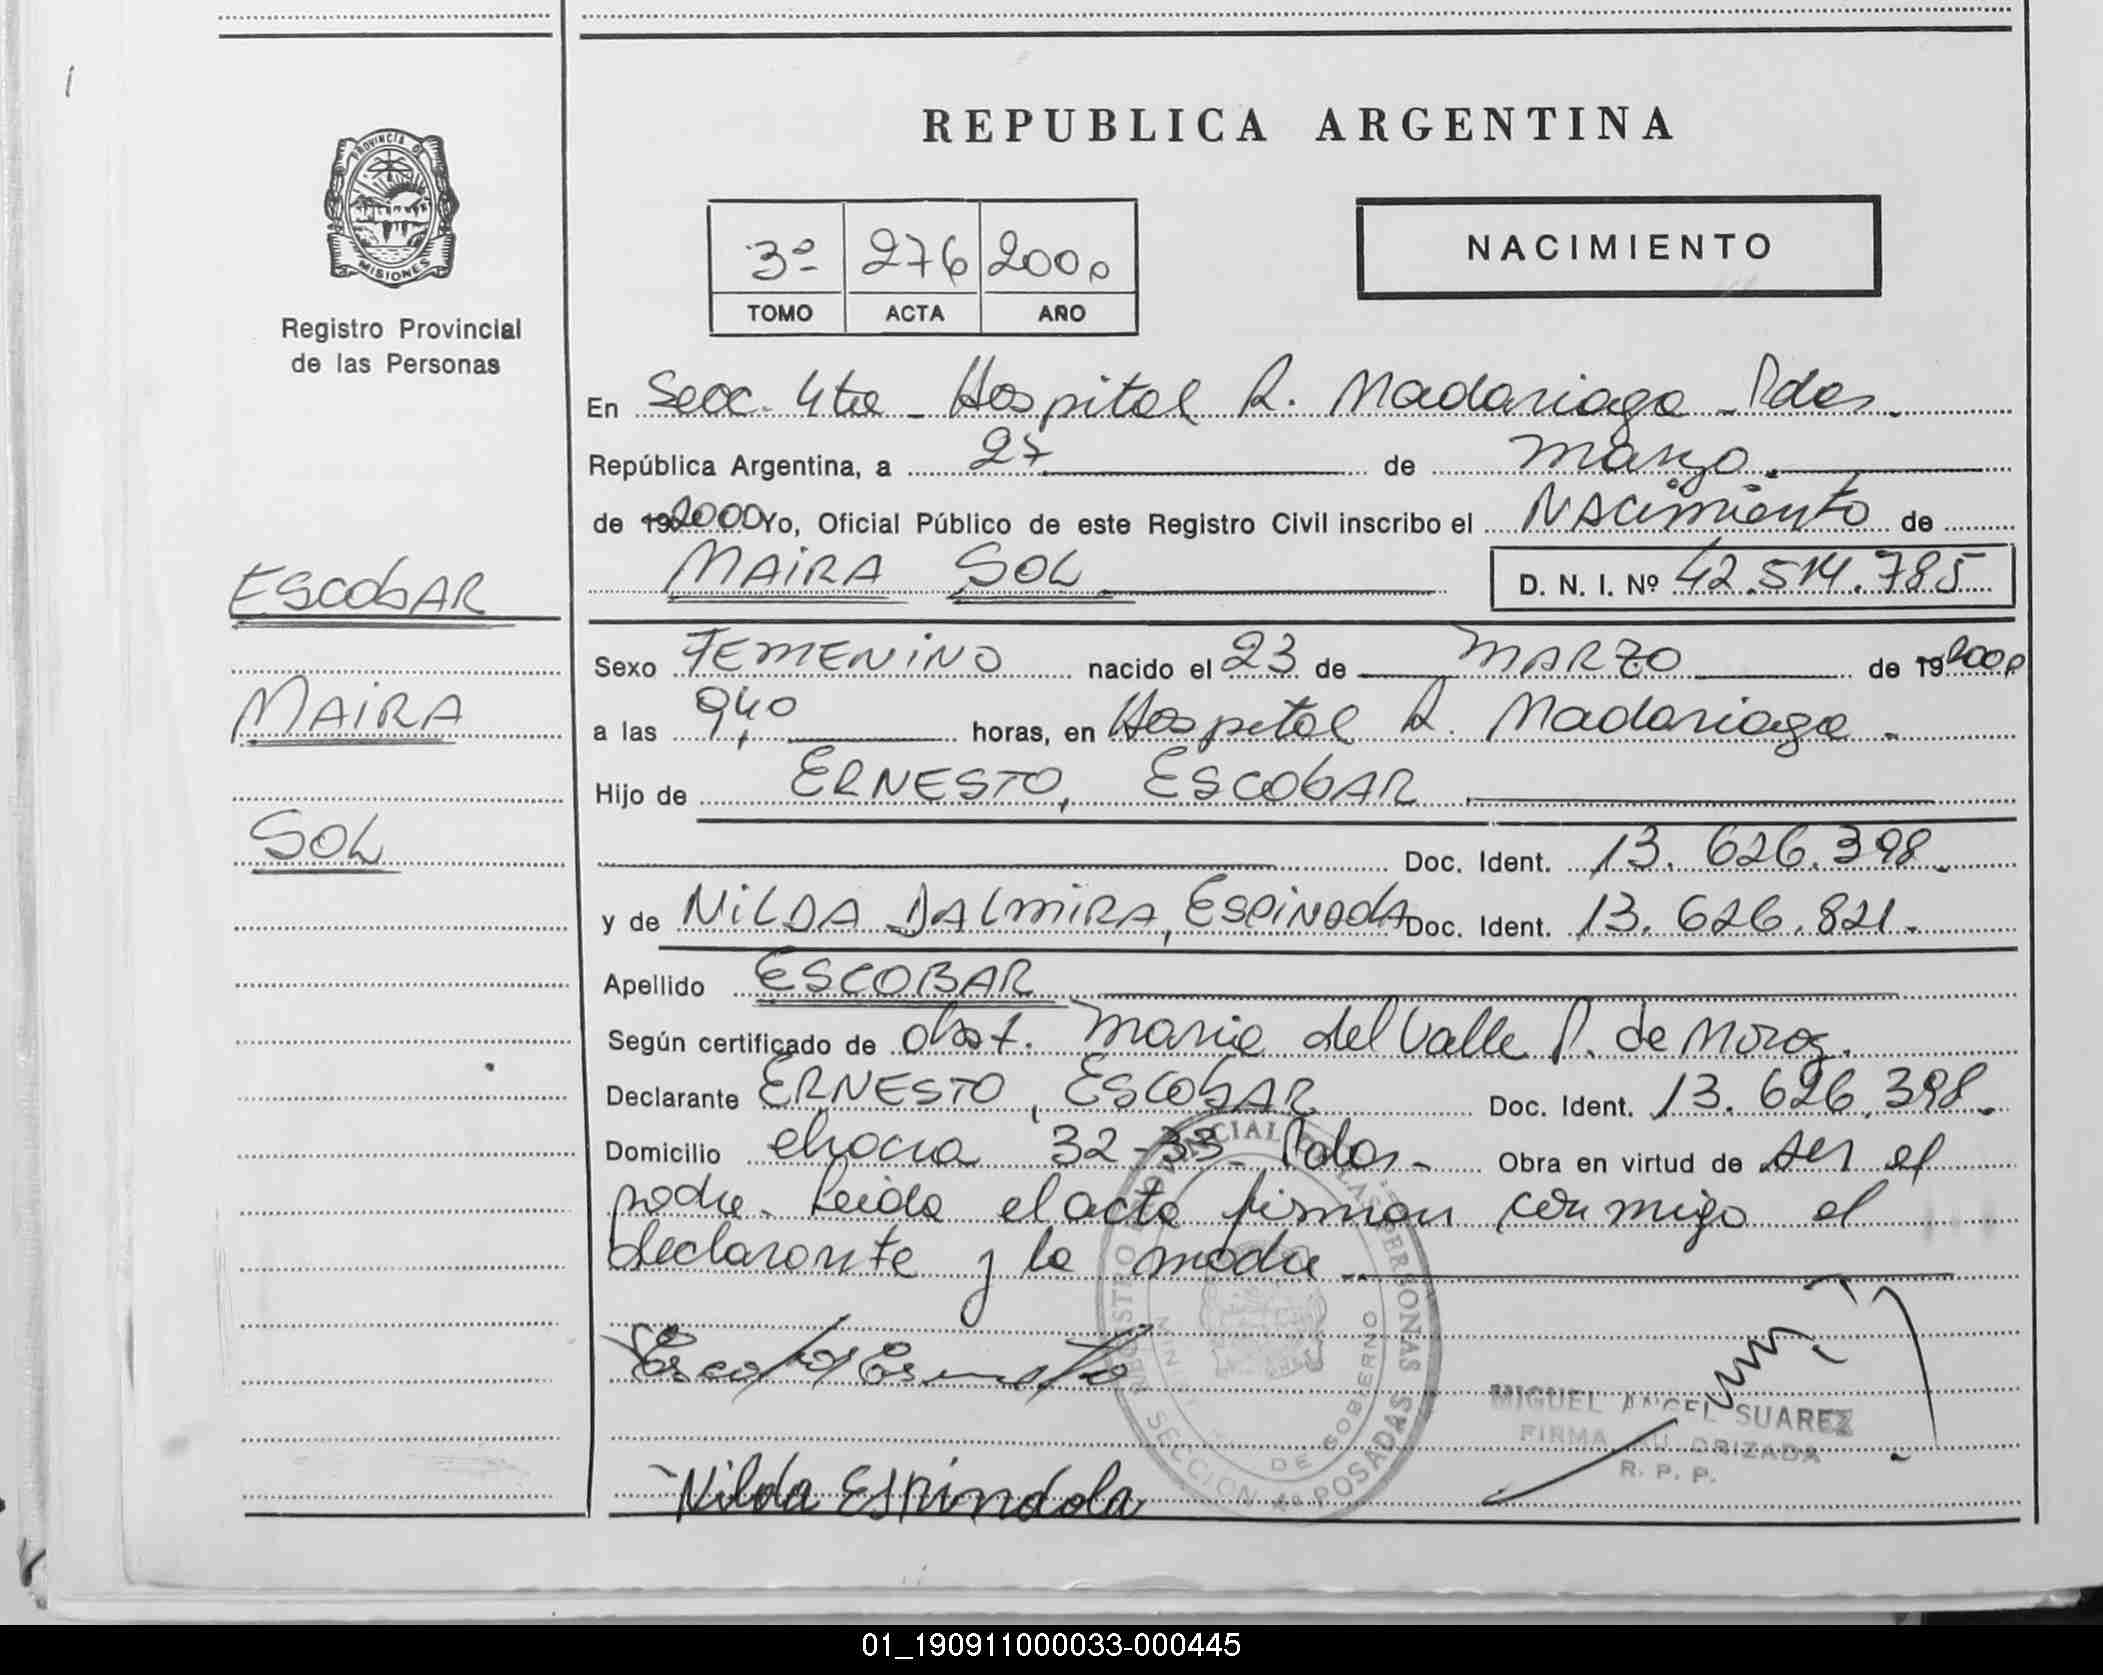 REPUBLICA ARGENTINA
PROVINCIA DE
MISIONES
Registro Provincial
de las Personas
3º 276 2000
TOMO ACTA AÑO
NACIMIENTO
En Secc. 4ta - Hospital R. Madariaga - Pdas.
República Argentina, a 27 de marzo.
de 19 2000 Yo, Oficial Público de este Registro Civil inscribo el NACimiento de
MAiRA SOL D. N. I. Nº 42.514.785
ESCObAR
MAiRA
SOL
Sexo FEMENiNO nacido el 23 de MARZO de 19 2000
a las 9,40 horas, en Hospital R. Madariaga.
Hijo de ERNESTO, ESCObAR
Doc. Ident. 13.626.398.
y de NiLDA DALmiRA, Doc. Ident. 13.626.821.
Apellido ESCOBAR
Según certificado de obst. Maria del Valle P. de
Declarante ERNESTO, ESCObAR Doc. Ident. 13.626.398.
Domicilio chacra 32-33 Pdas. Obra en virtud de ser el
padre. Leida el acta firman conmigo el
declarante y la madre.
Escobar Ernesto
Nilda Espindola
REGISTRO PROVINCIAL DE LAS PERSONAS
DE GOBIERNO
SECCION 4º POSADAS
MIGUEL ANGEL SUAREZ
FIRMA AUTORIZADA
R. P. P.
01_190911000033-000445